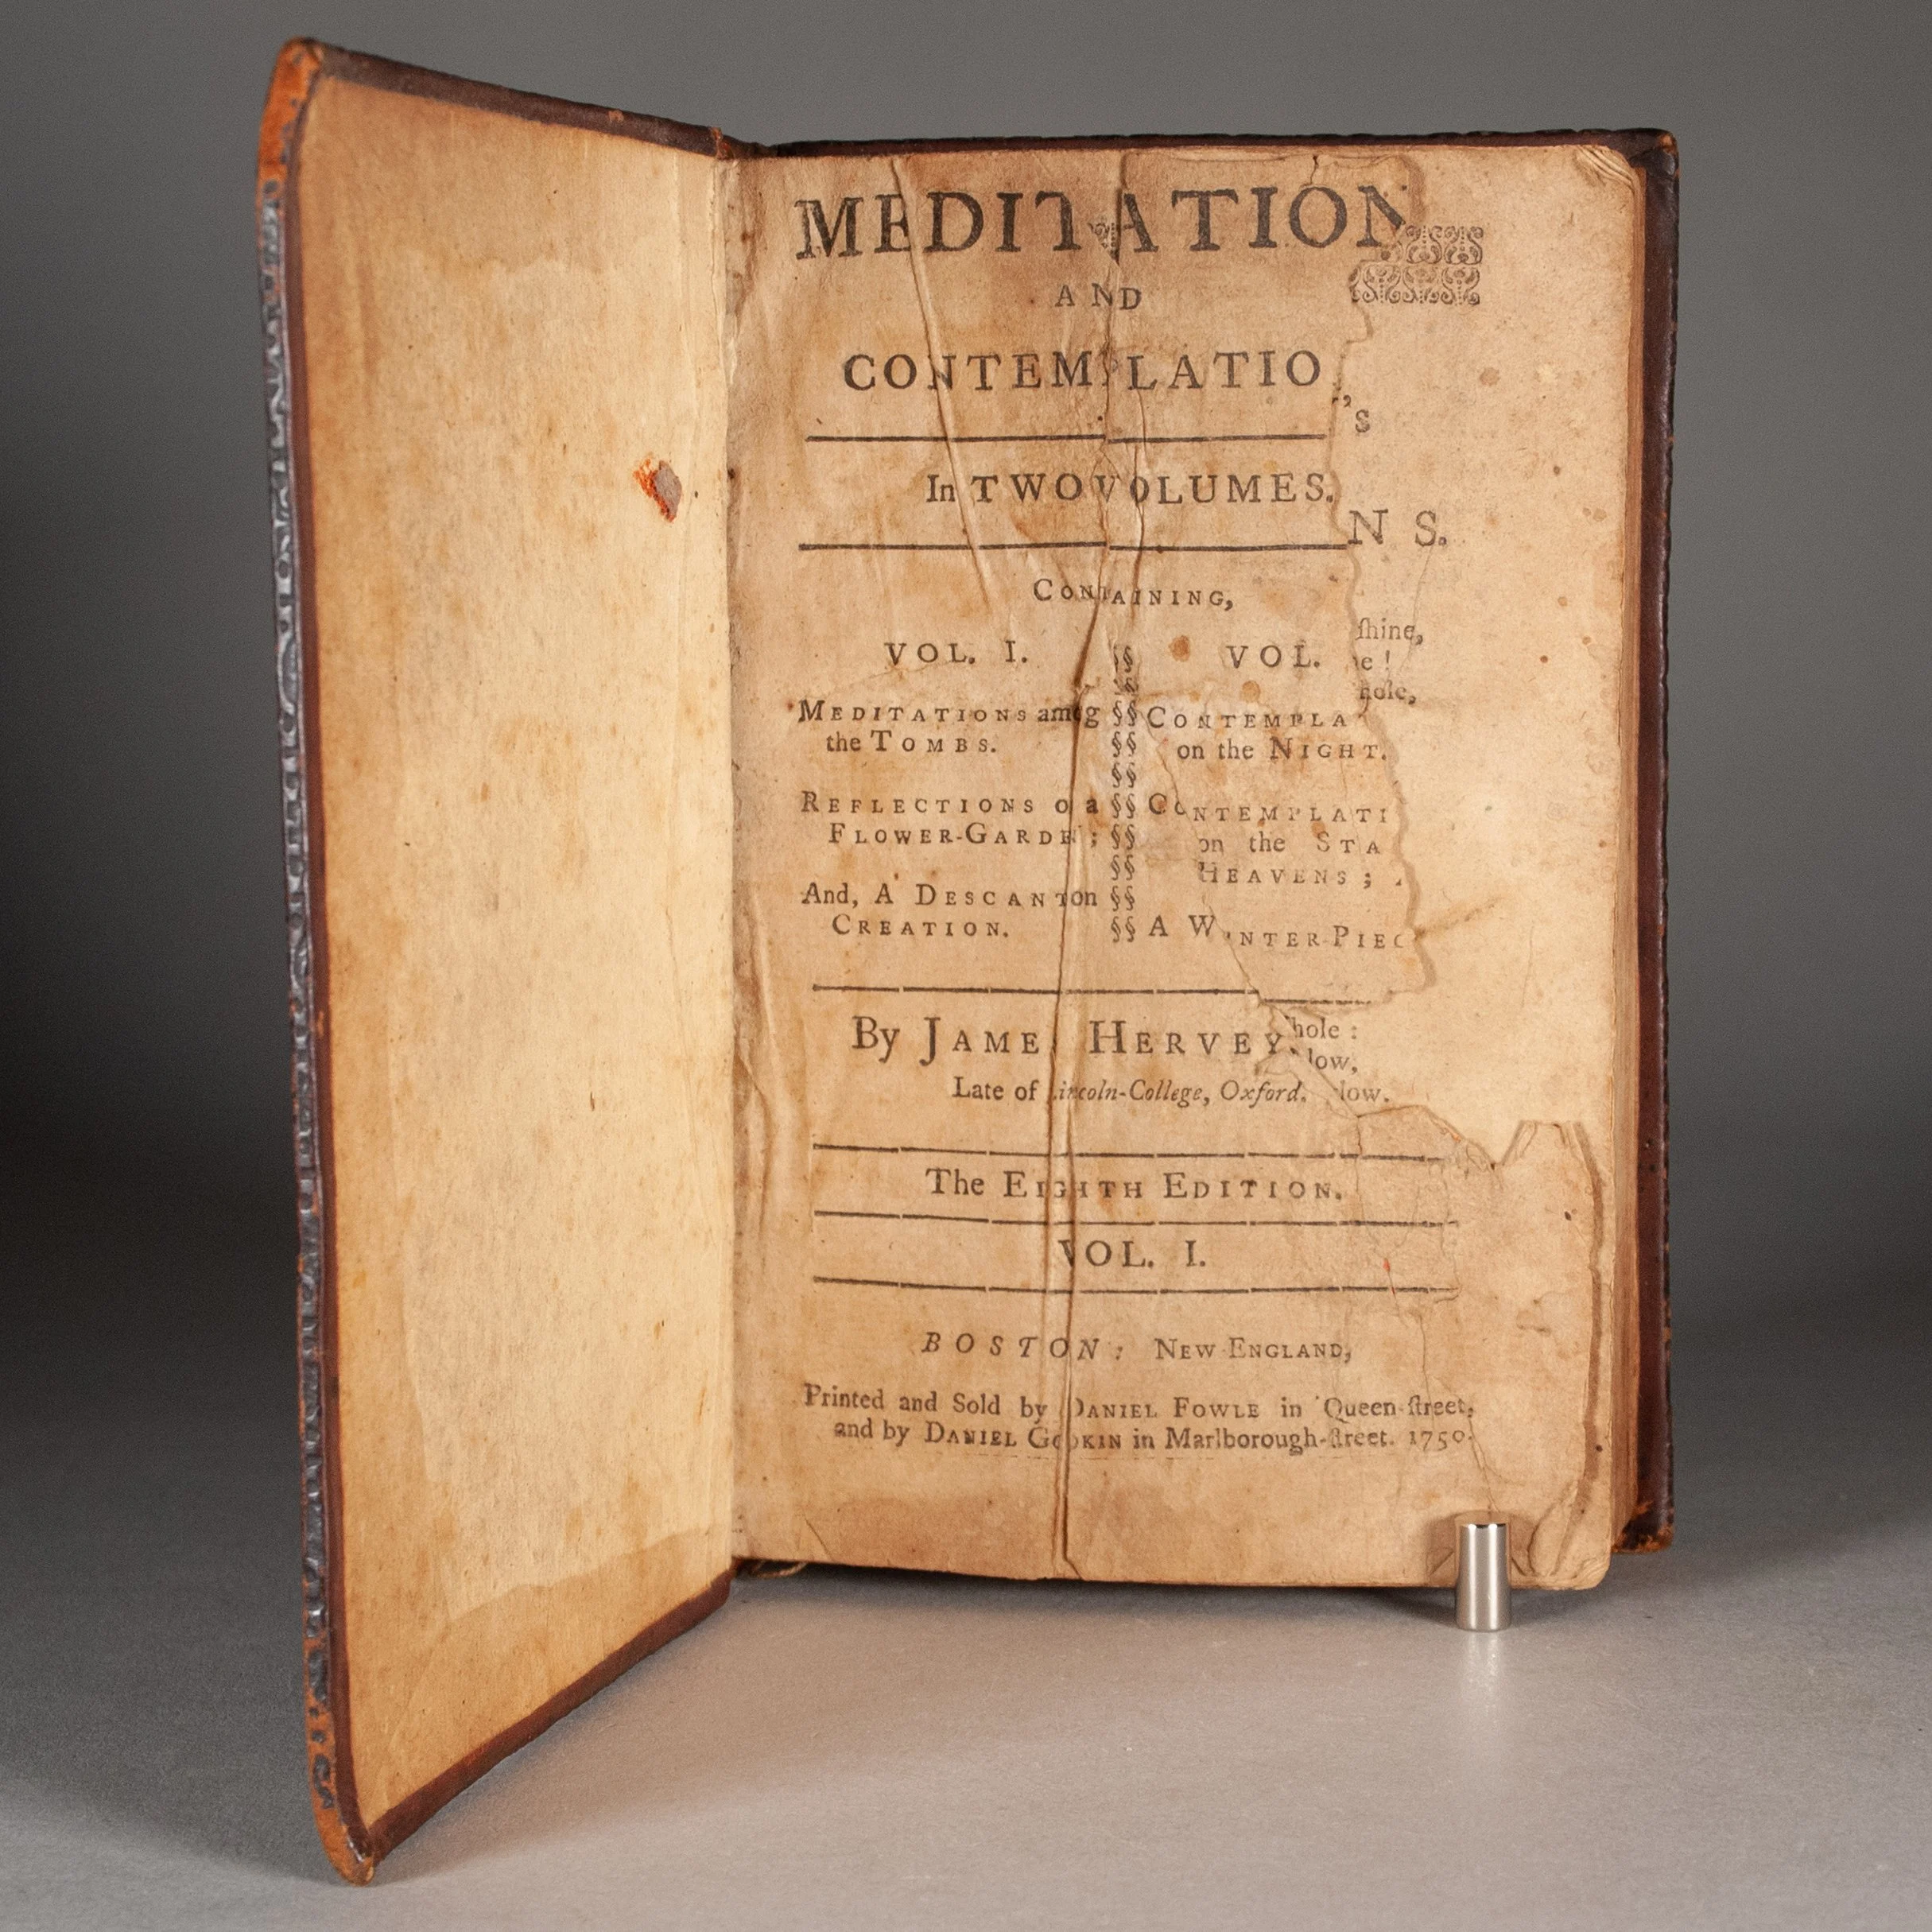 MEDITATION
AND
CONTEMPLATIO
'S
In TWO VOLUMES.
N S.
CONTAINING,
shine,
VOL. I. §§ VOL.
e!
hole,
MEDITATIONS among §§ CONTEMPLA
the TOMBS. §§ on the NIGHT.
REFLECTIONS o a §§ CONTEMPLATI
FLOWER-GARDE ; §§ on the STA
§§ HEAVENS;
And, A DESCANT on §§
CREATION. §§ A WINTER-PIEC
By JAME HERVEY.
hole:
low,
Late of Lincoln-College, Oxford.
low.
The EIGHTH EDITION.
VOL. I.
BOSTON: NEW-ENGLAND,
Printed and Sold by DANIEL FOWLE in Queen-street,
and by DANIEL GOOKIN in Marlborough-street. 1750.